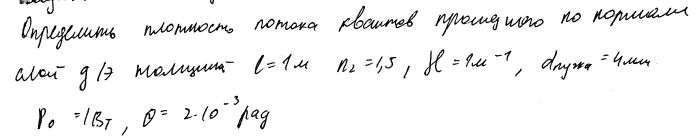 Определить плотность потока квантов прошедшего по нормали
слой д/э толщиной l = 1м n₂ = 1,5 , ℋ = 1м⁻¹ , dпучка = 4мм
P₀ = 1Вт , θ = 2·10⁻³ рад